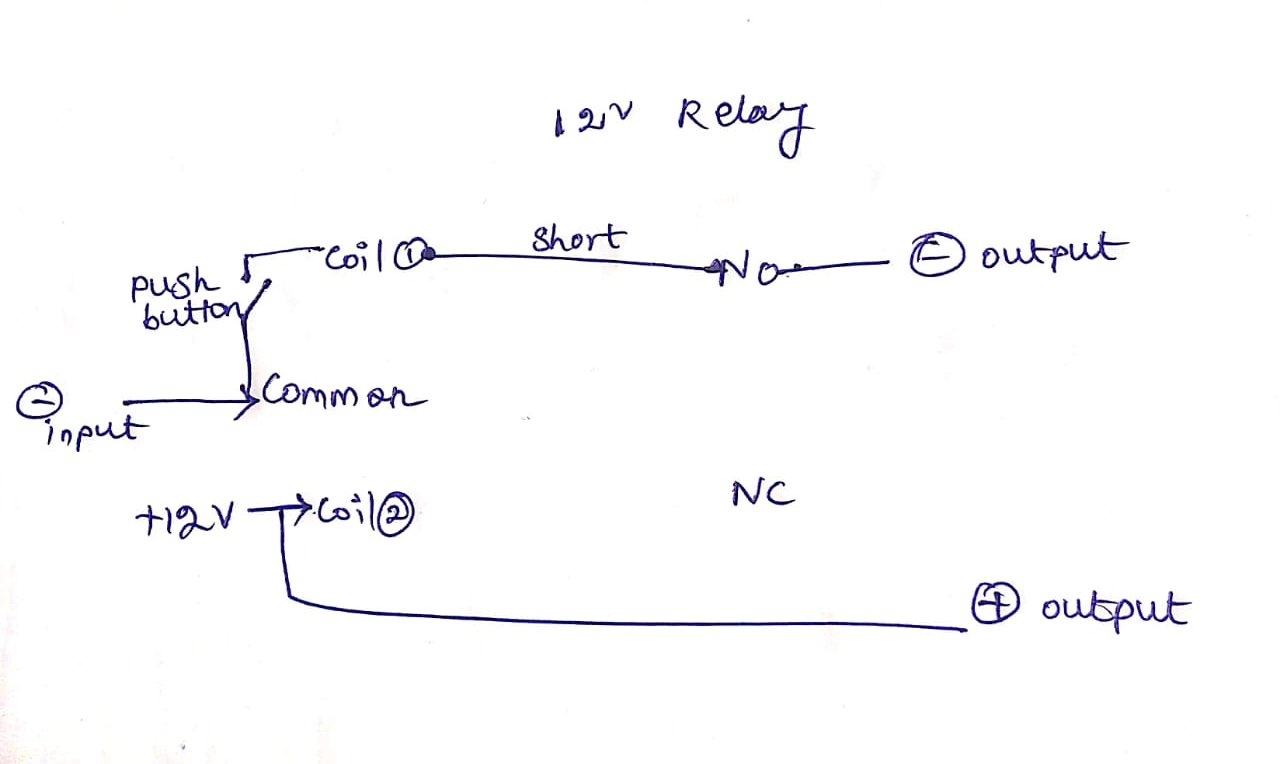 12V Relay
short
Coil ①
NO
⊖ output
push
button
⊖
input
Common
NC
+12V
Coil ②
⊕ output